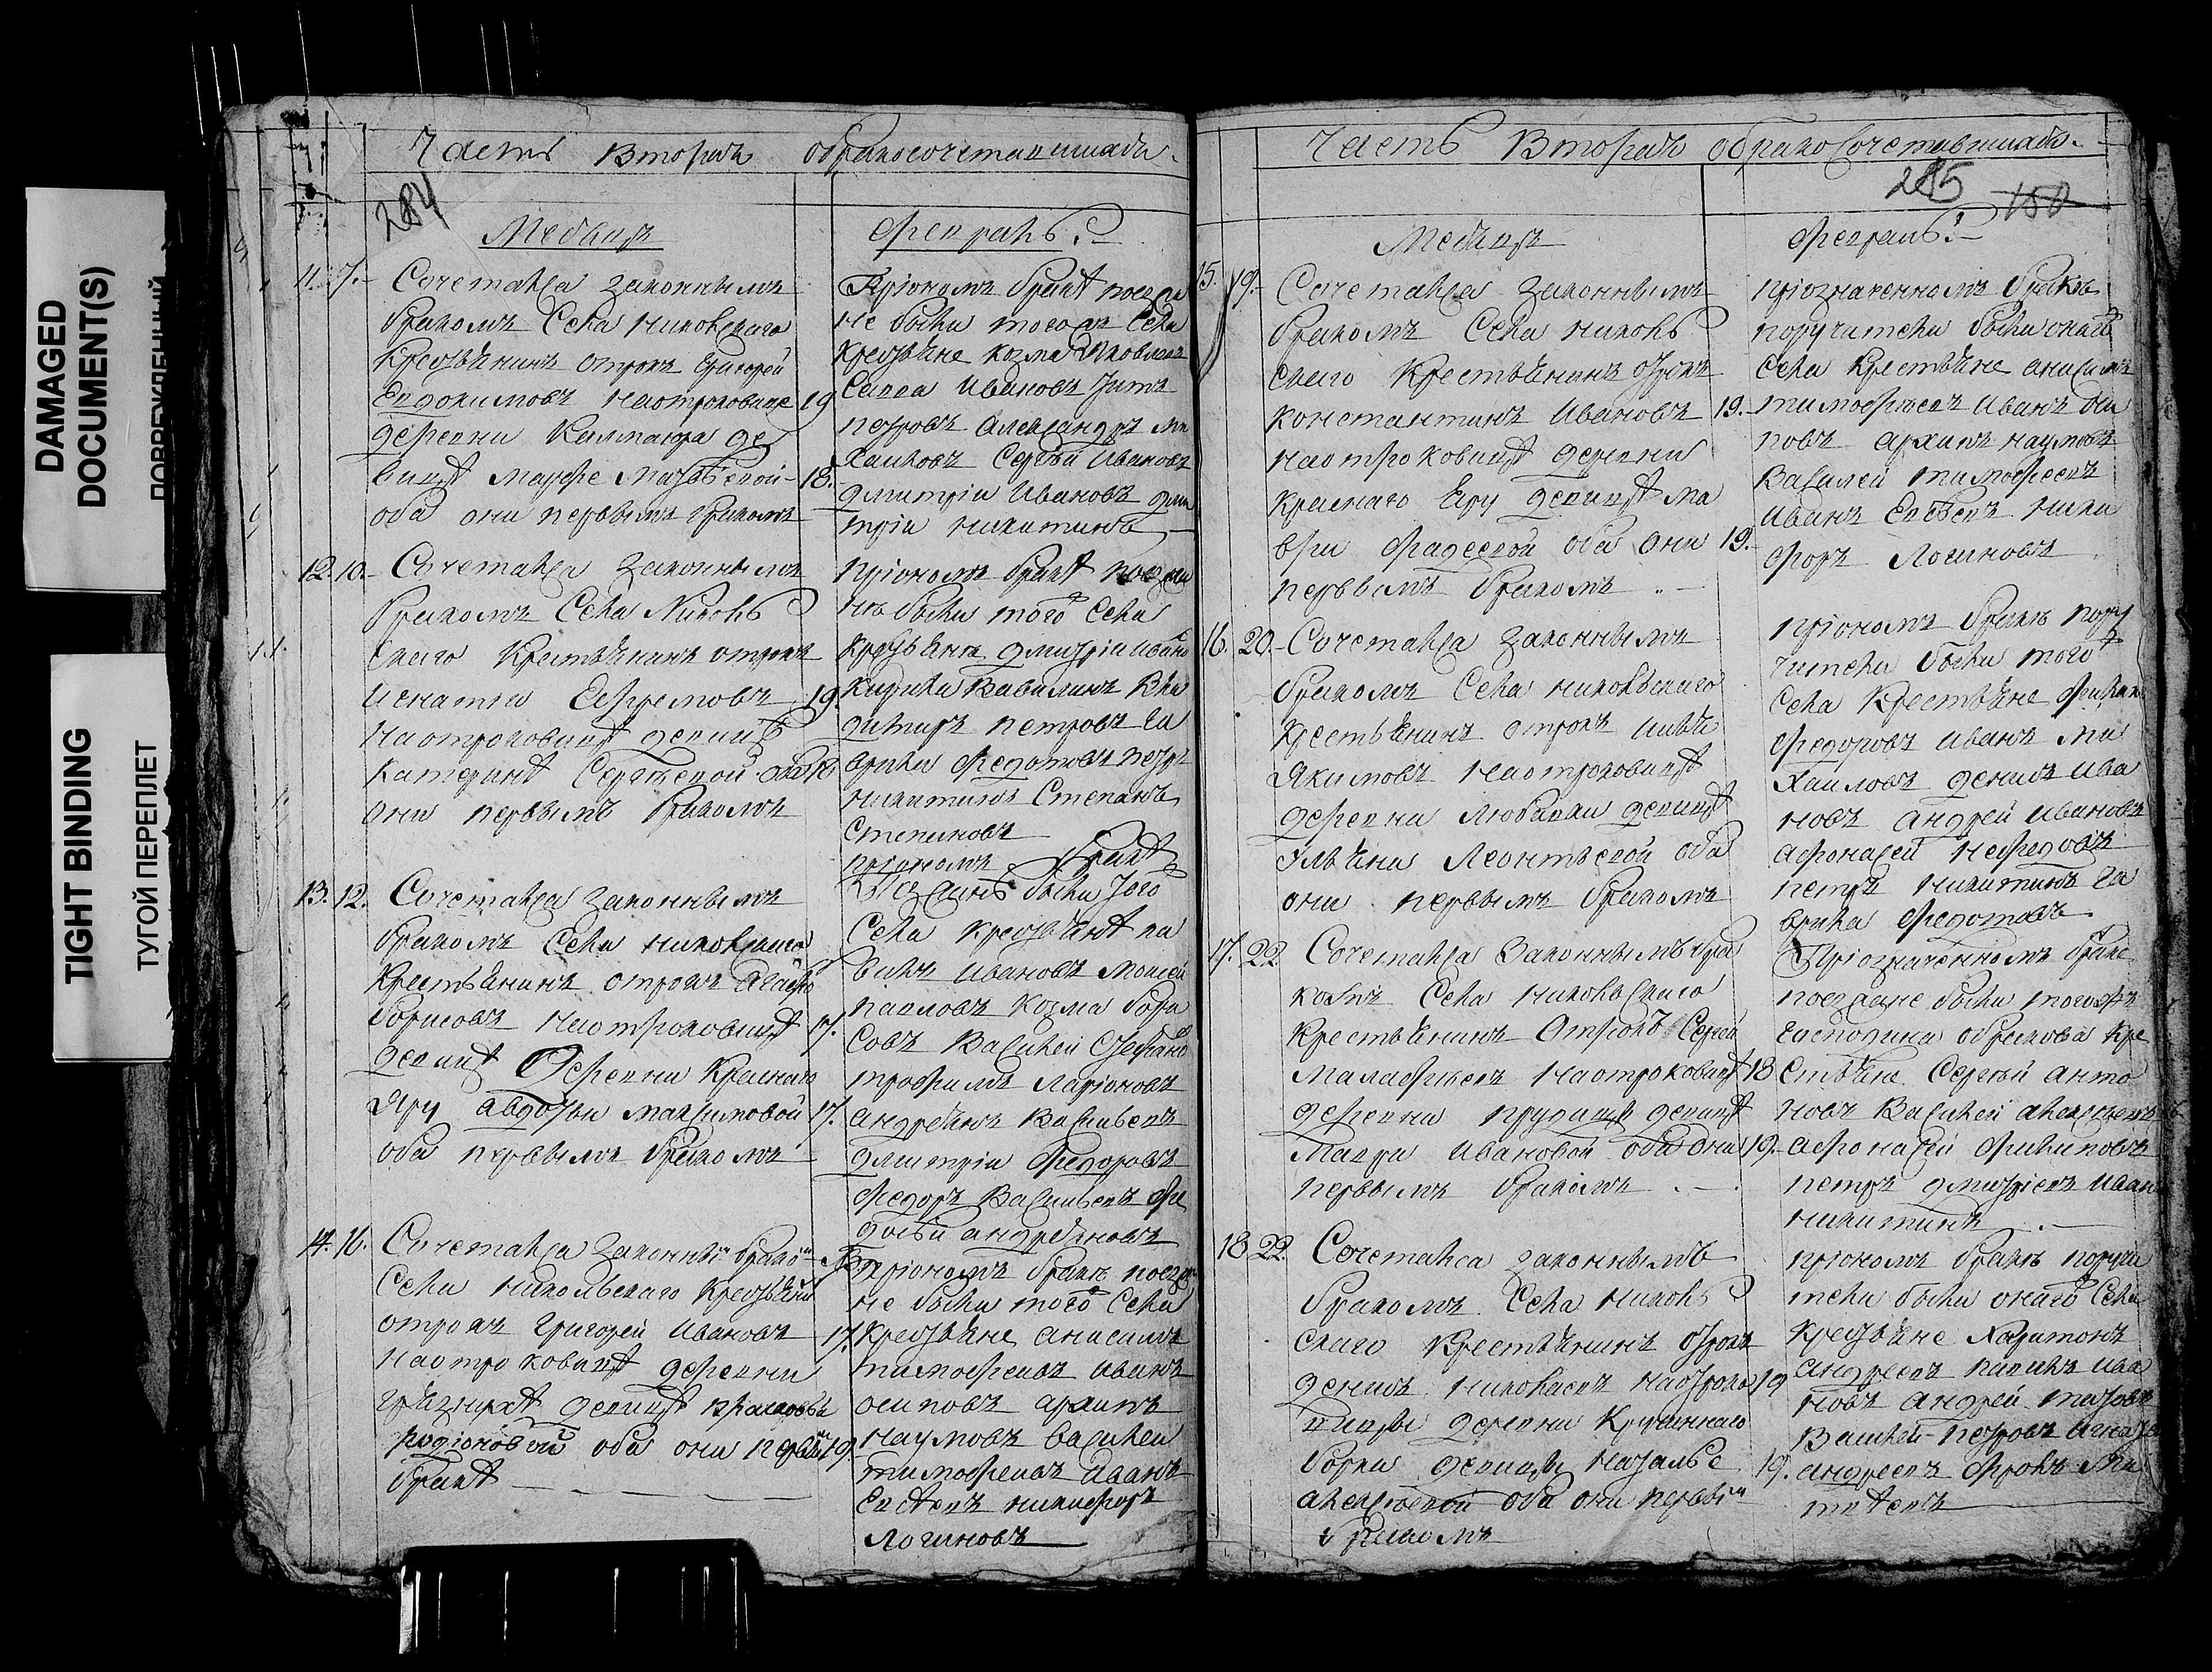 DAMAGED
DOCUMENT(S)
TIGHT BINDING
ТУГОЙ ПЕРЕПЛЕТ
Часть Вторая обракосочетавшихъ.
284
Месяцъ Февраль.
11. 7. Сочетался законнымъ
бракомъ Села никольскаго
Крестьянинъ отрокъ Григорей
Евдокимовъ наотроковице 19
деревни де
вице Марфе 18.
оба они первымъ бракомъ
Приономъ браке поезжа
не были того Села
крестьяне козма Яковлевъ
Савва Ивановъ
петровъ Александръ ми
хаиловъ Сергеи Ивановъ
дмитріи Ивановъ дми
тріи никитинъ
12. 10. Сочетался законнымъ
бракомъ Села Николь
скаго Крестьянинъ отрокъ
Игнатіи Ефремовъ 19.
Наотроковице девице
Катерине Сергеевой оба
они первымъ бракомъ
приономъ браке поезжа
не были того Села
Крестьяне дмитріи Ивано
Кирила Вавилинъ Вла
димиръ петровъ Га
врила Федотовъ петръ
никитинъ Степанъ
Степановъ
13. 12. Сочетался законнымъ
бракомъ Села никольскаго
Крестьянинъ отрокъ Агафо
Борисовъ Наотроковице 17.
девице Деревни Краснаго
Яру авдотьи максимовой 17.
оба первымъ бракомъ
приономъ браке
были того
Села крестьяне па
велъ Ивановъ Моисеи
павловъ Козма Бори
совъ Василеи Стефано
трофимъ ларіоновъ
андреянъ Васильевъ
дмитріи Федоровъ
Федоръ Васильевъ
андреяновъ
14. 16. Сочетался законны брако
Села никольскаго Крестьяни
отрокъ Григорей Ивановъ 17.
Наотроковице деревни
девице прасковьи
родіоновой оба они первы 19.
браке
приономъ браке поезжа
не были того Села
Крестьяне анисимъ
тимофеевъ Иванъ
осиповъ архипъ
наумовъ василеи
тимофеевъ Иванъ
Евсеевъ никифоръ
Логиновъ
Часть Вторая обракосочетавшихъ.
285 150
Месяцъ Февраль.
15. 19. Сочетался законнымъ
бракомъ Села николь
скаго Крестьянинъ отрокъ
константинъ Ивановъ 19.
наотроковице деревни
краснаго Яру девице ма
вры фадеевой оба они 19.
первымъ бракомъ
приозначенномъ браке
поручители были онаго
Села Крестьяне анисимъ
тимофеевъ Иванъ оси
повъ архипъ наумовъ
Василей тимофеевъ
Иванъ Евсеевъ ники
форъ Логиновъ
16. 20. Сочетался законнымъ
бракомъ Села никольскаго
крестьянинъ отрокъ
Якимовъ наотроковице
деревни любавки девице
ульяни Леонтьевой оба
они первымъ бракомъ
приономъ браке пору
чители были того
Села Крестьяне
Федоровъ Иванъ Ми
хаиловъ денисъ Ива
новъ андрей Ивановъ
афонасей нефедовъ
петръ никитинъ Га
врила Федотовъ
17. 22. Сочетался Законнымъ бра
комъ Села никольскаго
Крестьянинъ Отрокъ Сергей
Малафеевъ Наотроковице 18
деревни девице
Маври Ивановой оба они 19.
первымъ бракомъ
Приозначенномъ браке
поезжане были тогожъ
Господина обрескова кре
стьяне Сергей анто
новъ Василей алексеевъ
афонасей Филиповъ
петръ дмитріевъ Иванъ
никитинъ
18 22. Сочетался законнымъ
бракомъ Села николь
скаго Крестьянинъ отрокъ
денисъ николаевъ наотроко 19
вицы деревни
девицы Натальe 19.
алексеевой оба они первы
бракомъ
приономъ браке поручи
тели были онаго Села
Крестьяне Харитонъ
андреевъ павилъ Ива
новъ андрей титовъ
Василей петровъ Игнатей
андреевъ фролъ Ма
твеевъ